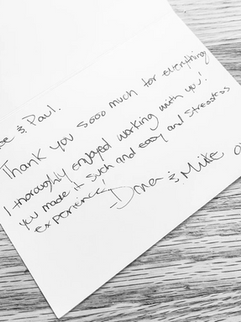 & Paul.
Thank you sooo much for everything
I thoroughly enjoyed working with you!
you made it such and easy and stressless
experience!
Dona & Mike